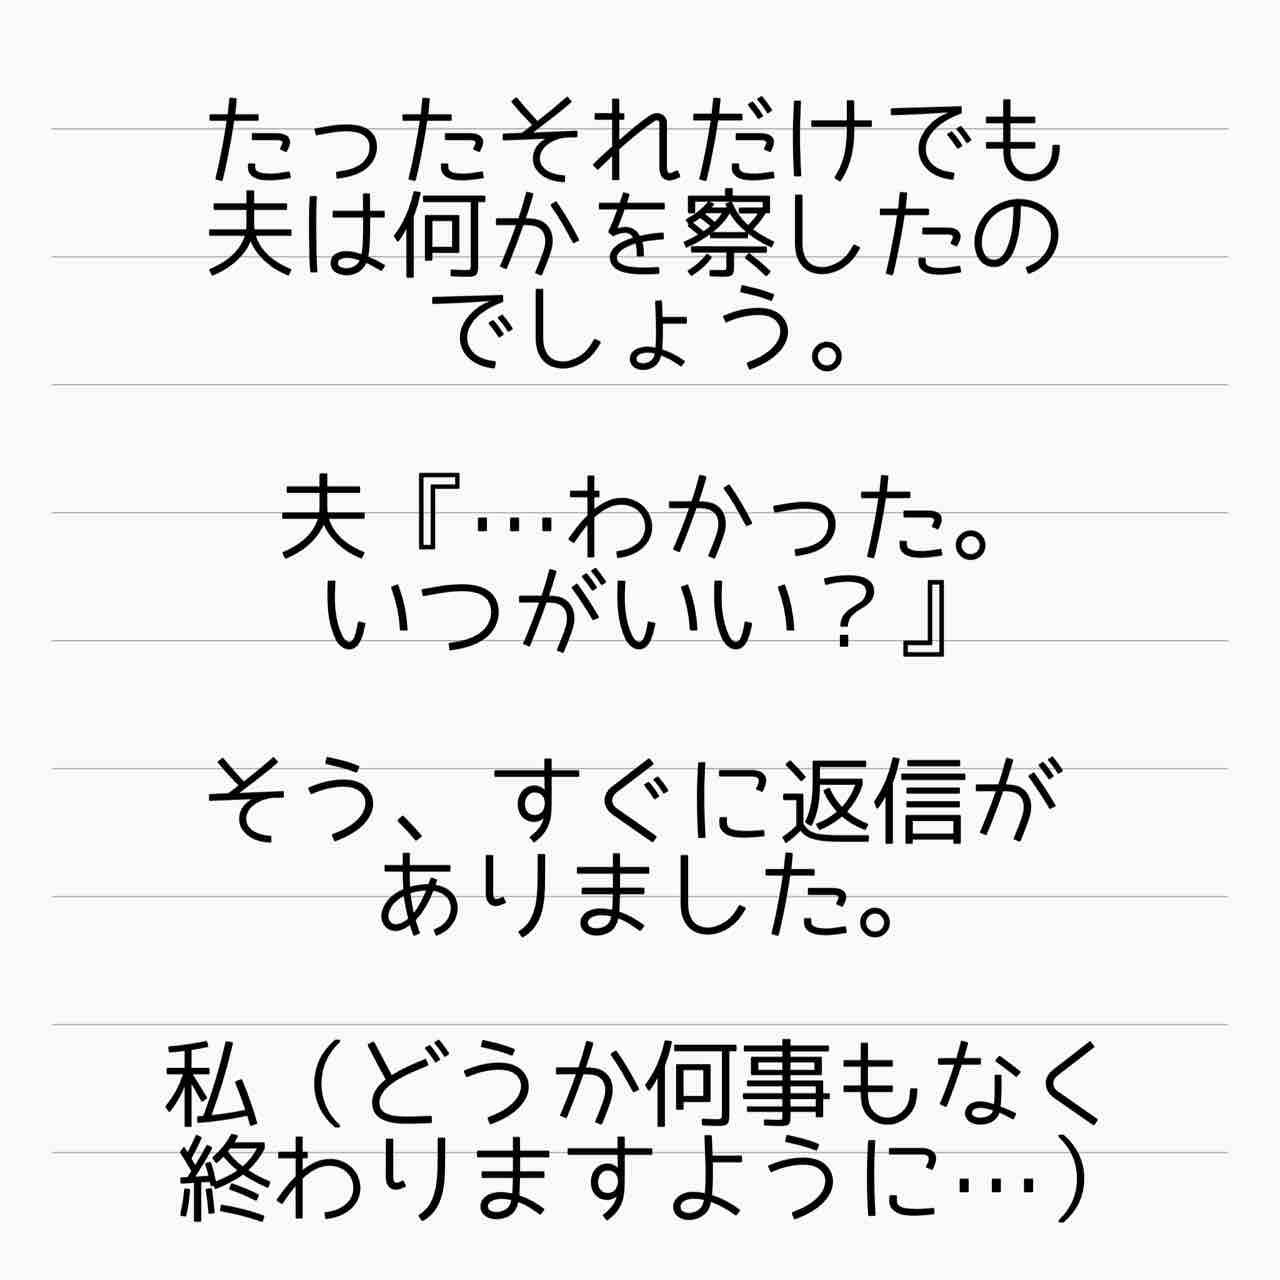 たったそれだけでも
夫は何かを察したの
でしょう。
夫『…わかった。
いつがいい？』
そう、すぐに返信が
ありました。
私（どうか何事もなく
終わりますように…）